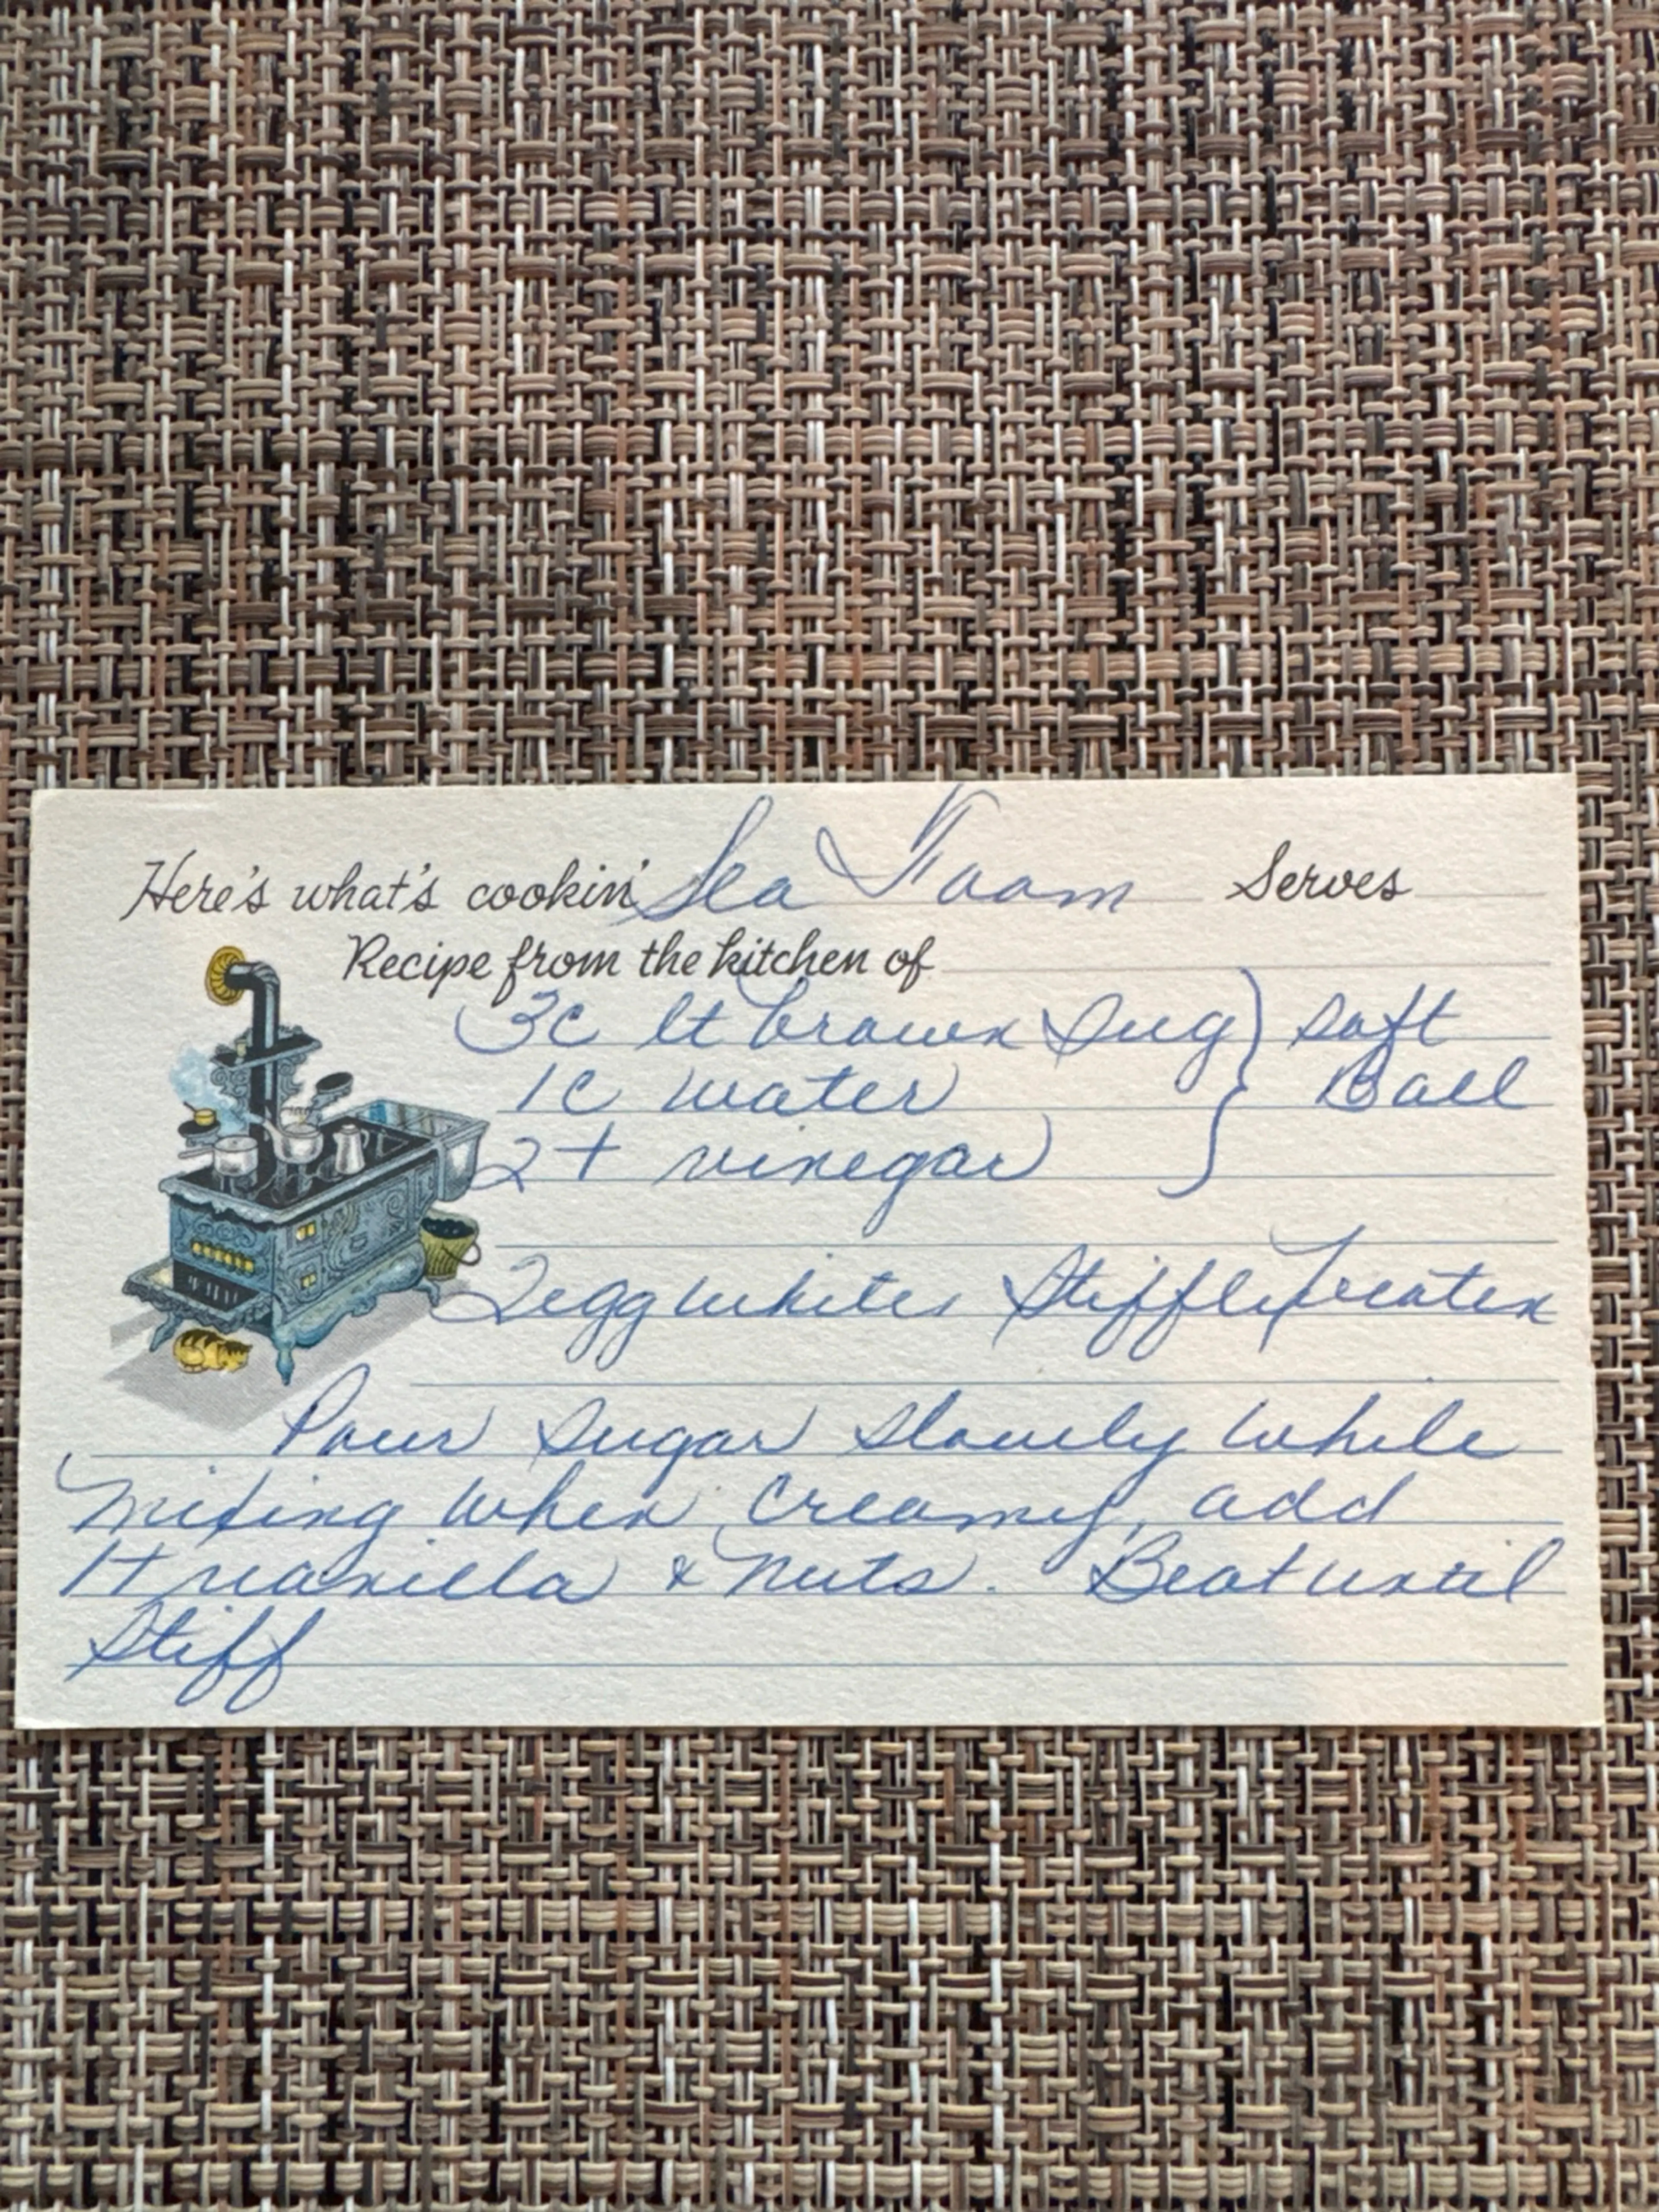 Here's what's cookin' Sea Foam Serves
Recipe from the kitchen of
3c lt brown sug } Soft
1c water } Ball
2t vinegar }
2 egg whites stiffly beaten
Pour sugar slowly while
mixing when creamy, add
1t vanilla & nuts. Beat until
stiff